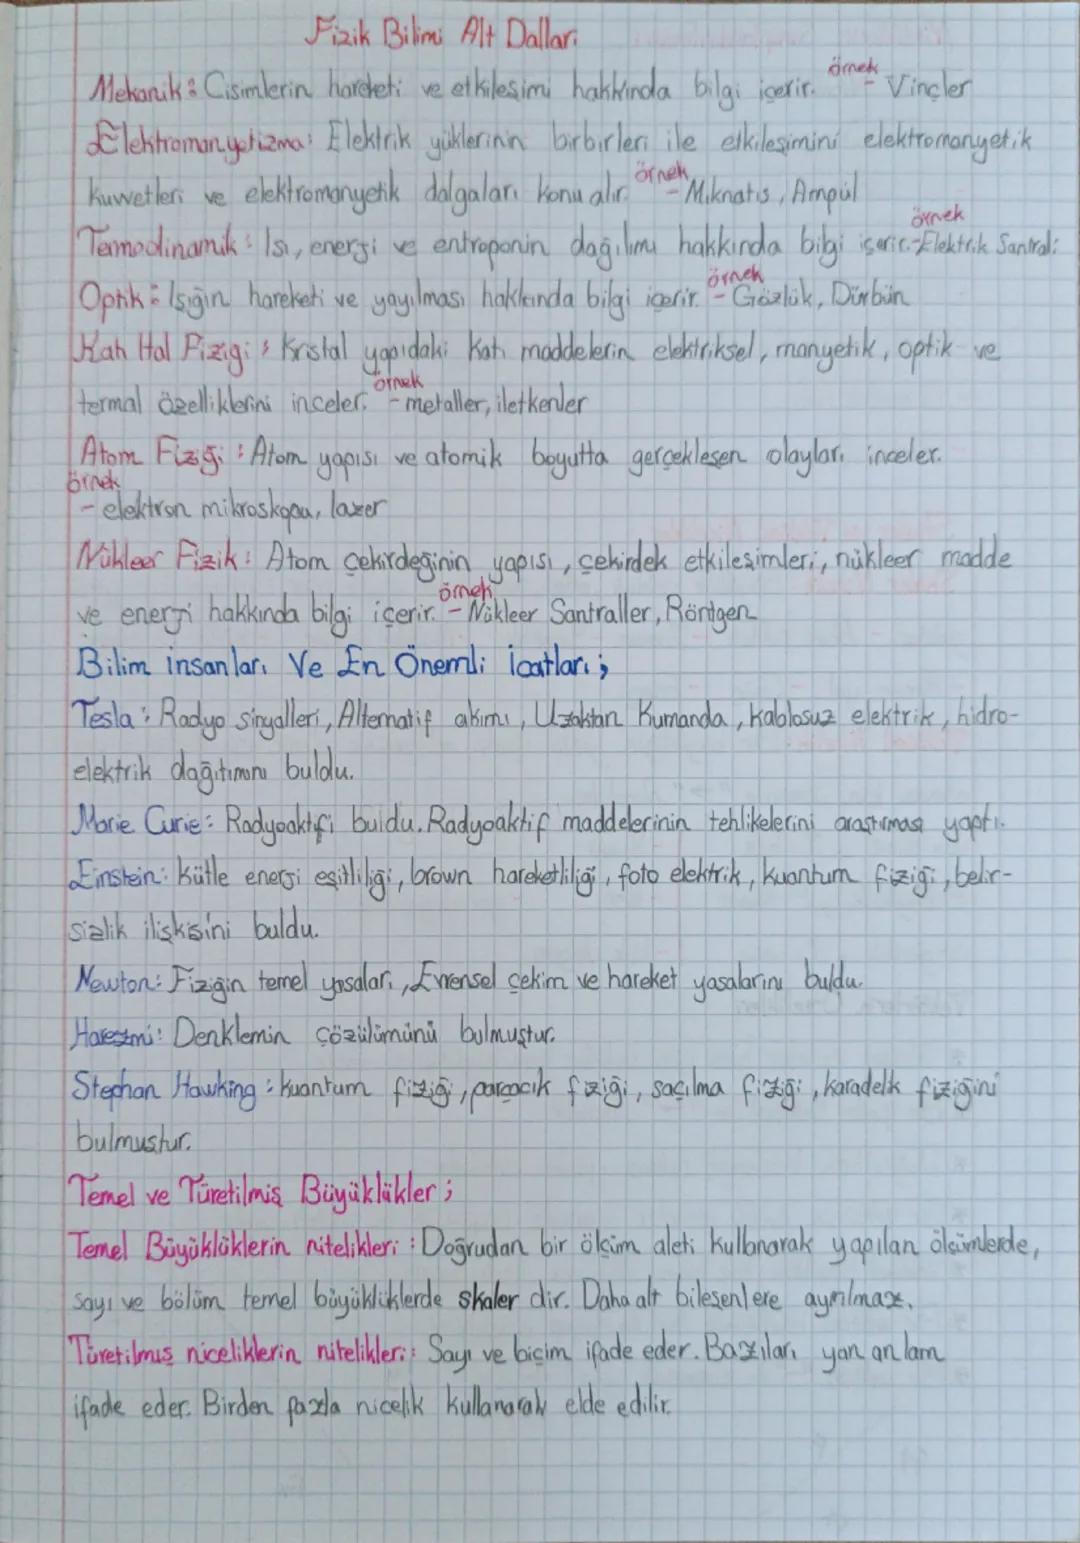 Fizik Bilimi Alt Dalları
Mekanik: Cisimlerin hareketi ve etkileşimi hakkında bilgi içerir. örnek - Vinçler
Elektromanyetizma: Elektrik yüklerinin birbirleri ile etkileşimini elektromanyetik
kuvvetleri ve elektromanyetik dalgaları konu alır. örnek - Mıknatıs, Ampül
Termodinamik: Isı, enerji ve entroponin dağılımı hakkında bilgi içerir. örnek - Elektrik Santrali
Optik: Işığın hareketi ve yayılması hakkında bilgi içerir. örnek - Gözlük, Dürbün
Katı Hal Fiziği: Kristal yapıdaki Katı maddelerin elektriksel, manyetik, optik ve
termal özelliklerini inceler. örnek - metaller, iletkenler
Atom Fiziği: Atom yapısı ve atomik boyutta gerçekleşen olayları inceler.
örnek
- elektron mikroskopu, lazer
Nükleer Fizik: Atom çekirdeğinin yapısı, çekirdek etkileşimleri, nükleer madde
ve enerji hakkında bilgi içerir. örnek - Nükleer Santraller, Röntgen
Bilim insanları Ve En Önemli İcatları;
Tesla: Radyo sinyalleri, Alternatif akımı, Uzaktan Kumanda, kablosuz elektrik, hidro-
elektrik dağıtımını buldu.
Marie Curie: Radyoaktifi buldu. Radyoaktif maddelerinin tehlikelerini araştırması yaptı.
Einstein: Kütle enerji eşitliliği, brown hareketliliği, foto elektrik, kuantum fiziği, belir-
sizlik ilişkisini buldu.
Newton: Fiziğin temel yasaları, Evrensel çekim ve hareket yasalarını buldu.
Harezmi: Denklemin çözülümünü bulmuştur.
Stephan Hawking: kuantum fiziği, parçacık fiziği, saçılma fiziği, karadelik fiziğini
bulmuştur.
Temel ve Türetilmiş Büyüklükler;
Temel Büyüklüklerin nitelikleri: Doğrudan bir ölçüm aleti kullanarak yapılan ölçümlerde,
sayı ve bölüm temel büyüklüklerde skaler dir. Daha alt bileşenlere ayrılmaz.
Türetilmiş niceliklerin nitelikleri: Sayı ve biçim ifade eder. Bazıları yan anlam
ifade eder. Birden fazla nicelik kullanarak elde edilir.